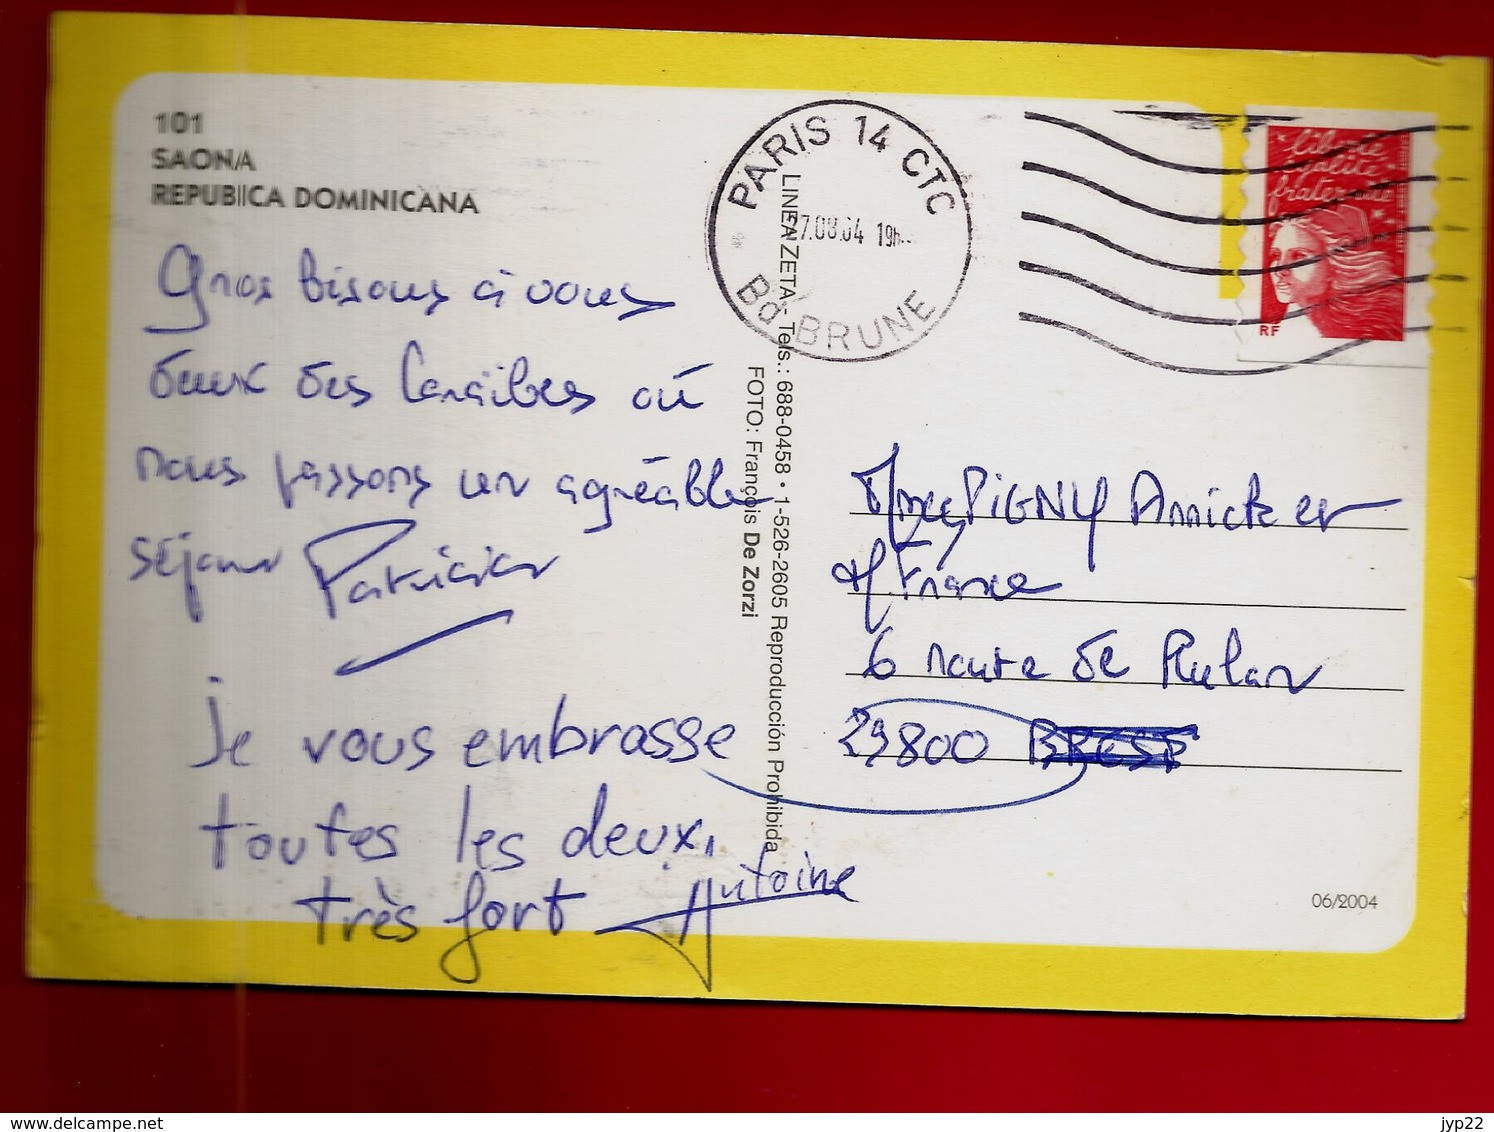 101
SAONA
REPUBLICA DOMINICANA
Gros bisous à vous
deux des Caraïbes où
nous passons un agréable
séjour Patricia
Je vous embrasse
toutes les deux,
très fort Antoine
PARIS 14 CTC
7.08.04 19h
Bd BRUNE
LINEA ZETA - Tels.: 688-0458 • 1-526-2605 Reproducción Prohibida
FOTO: François De Zorzi
liberté
égalité
fraternité
RF
PIGNY Annick et
France
6 route de
29800 BREST
06/2004
www.delcampe.net
jyp22